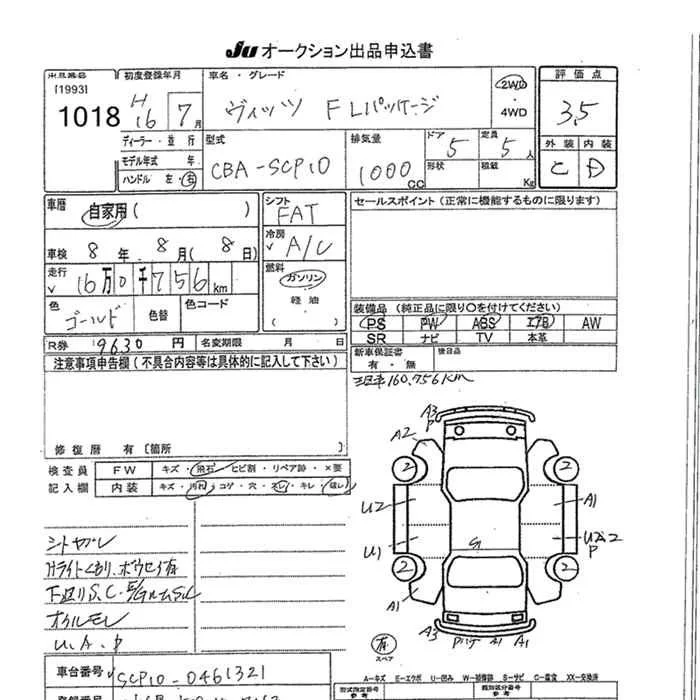 JU オークション出品申込書
出品番号 初度登録年月 車名・グレード 評価点
[1993]
1018 H16 7月 ヴィッツ F Lパッケージ 2WD ・ 4WD 3,5
ディーラー・並行 型式 排気量 ドア 定員 外装 内装
モデル年式 年 CBA-SCP10 1000CC 5 5人 C D
ハンドル 左・右 形状 積載 Kg
車歴 自家用( ) シフト FAT セールスポイント (正常に機能するものに限ります)
車検 8年 8月( 8日) 冷房 A/C
走行 16万0千756km 燃料 ガソリン
軽油
( )
色 ゴールド 色替 色コード 装備品 (純正品に限り○を付けてください)
PS PW ABS エアB AW
SR ナビ TV 本革
R券 9630円 名変期限 月 日 新車保証書 有・無 後日品
注意事項申告欄 (不具合内容等は具体的に記入して下さい) 160,756km
修復歴 有 [箇所
検査員 FW キズ・飛石・ヒビ割・リペア跡・×要
記入欄 内装 キズ・汚れ・コゲ・穴・スレ・キレ・
A3
P
A2
2 2
U2 A1
U1 S P
2 2
A1
A3 A1 A1
有
スペア
シートヤブレ
Hライトくもり、ボウセイ有
下廻りS.C.
オイルモレ
U.A.P
車台番号 SCP10-0461321
A-キズ E-エクボ U-凹み W-補修跡 S-サビ C-腐食 XX-交換済
型式指定番号 類別区分番号
参考 参考